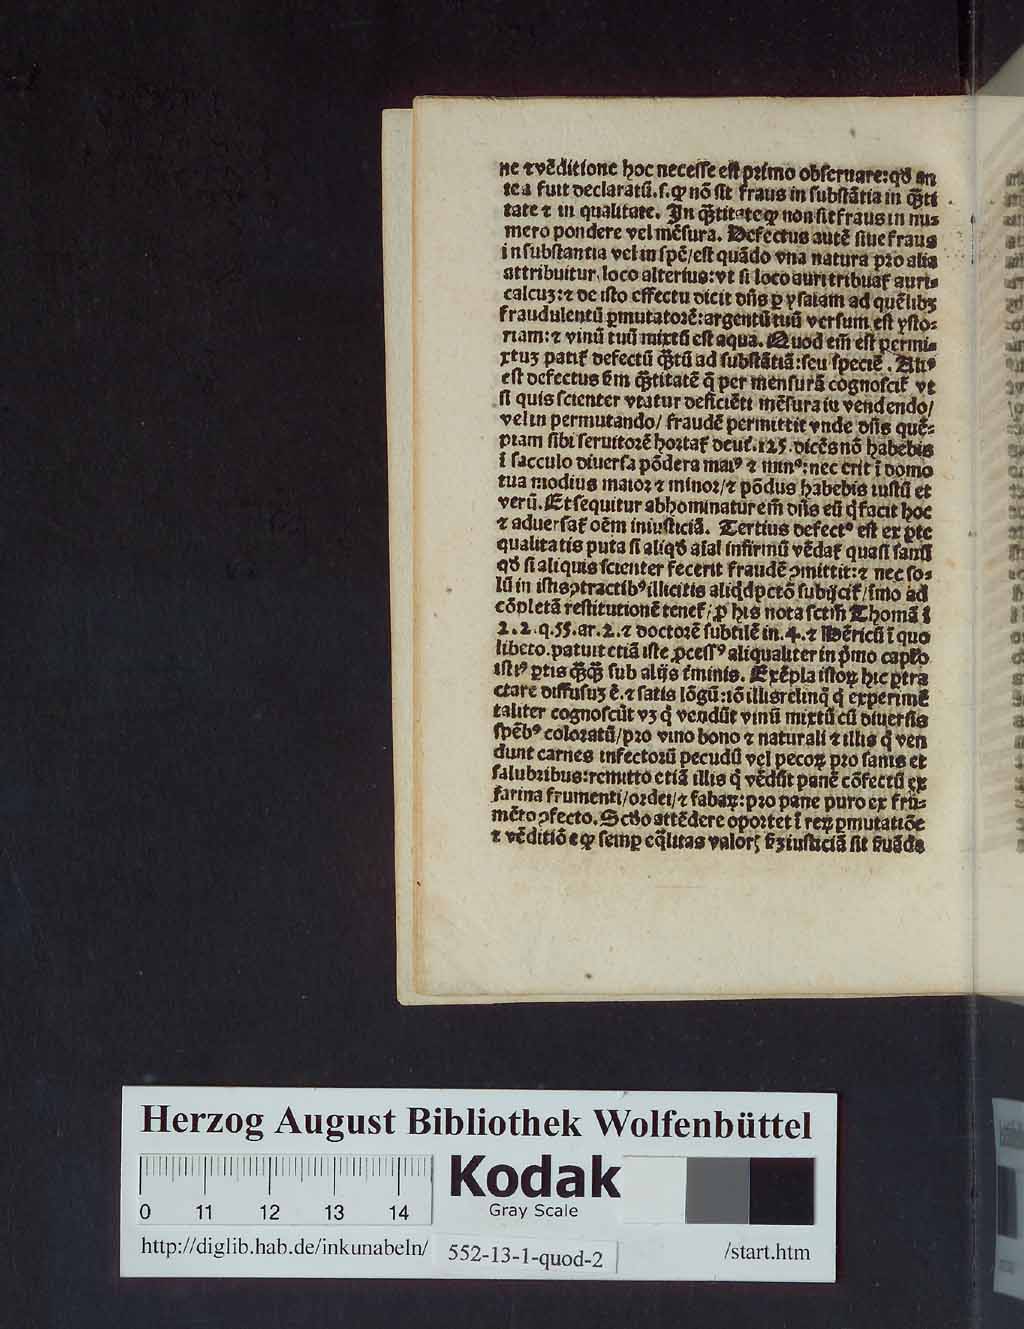 ne ⁊ vēditione hoc necesse est primo obseruare: qđ an
tea fuit declaratū. s. ꝙ nō sit fraus in substātia in q̄ti
tate ⁊ in qualitate. In q̄titate ꝙ non sit fraus in nu⸗
mero pondere vel mēsura. Defectus autē siue fraus
in substantia vel in spē/est quādo vna natura pro alia
attribuitur loco alterius: vt si loco auri tribuat̄ auri⸗
calcuꝫ: ⁊ de isto effectu dicit dn̄s ꝑ ysaiam ad quēlibꝫ
fraudulentū ꝑmutatorē: argentū tuū versum est ysto⸗
riam: ⁊ vinū tuū mixtū est aqua. Quod em̄ est permi⸗
xtuꝫ patit̄ defectū q̄tū ad substātiā: seu speciē. Aliꝰ
est defectus ẜm q̄titatē q̄ per mensurā cognoscit̄ vt
si quis scienter vtatur deficiēti mēsura in vendendo/
vel in permutando/ fraudē permittit vnde dn̄s quē⸗
piam sibi seruitorē hortat̄ deut̄. 125. dicēs nō habebis
ī sacculo diuersa pōdera maiꝰ ⁊ minꝰ: nec erit ī domo
tua modius maior ⁊ minor/ ⁊ pōdus habebis iustū et
verū. Et sequitur abhominatur em̄ dn̄s eū q̇ facit hoc
⁊ aduersat̄ oēm iniusticiā. Tertius defectꝰ est ex ꝑte
qualitatis puta si aliqđ aīal infirmū vēdat̄ quasi sanū
qđ si aliquis scienter fecerit fraudē ꝯmittit: ⁊ nec so⸗
lū in istis ꝯtractibꝰ illicitis aliqd pctō subijcit̄/ īmo ad
cōpletā restitutionē tenet̄/ ꝓ his nota sctm̄ Thomā ī
2. 2. q. 55. ar. 2. ⁊ doctorē subtilē in. 4. ⁊ Hēricū ī quo
libeto. patuit etiā iste ꝓcessꝰ aliqualiter in p̄mo capło
istiꝰ ꝑtis q̄q̄ sub alijs t̄minis. Exēpla istoꝝ hic ꝑtra
ctare diffusuꝫ ē. ⁊ satis lōgū: iō illis relinq̇ q̇ experimē
taliter cognoscūt vꝫ q̇ vendūt vinū mixtū cū diuersis
spēbꝰ coloratū/ pro vino bono ⁊ naturali ⁊ illis q̇ ven
dunt carnes infectorū pecudū vel pecoꝝ pro sanis et
salubribus: remitto etiā illis q̇ vēdūt panē cōfectū ex
farina frumenti/ ordei/ ⁊ fabaꝝ: pro pane puro ex frū⸗
mēto ꝯfecto. Scđo attēdere oportet ī reꝝ ꝑmutatiōe
⁊ vēditiōe ꝙ semꝑ eq̄litas valorꝭ ẜꝫ iusticiā sit ẜuāda
Herzog August Bibliothek Wolfenbüttel
Kodak
Gray Scale
0 11 12 13 14
http://diglib.hab.de/inkunabeln/ 552-13-1-quod-2 /start.htm